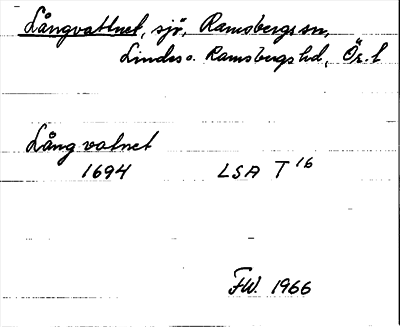 Långvattnet, sjö, Ramsbergs sn,
Lindes o. Ramsbergs hd, Ör. l
Långvatnet
1694 LSA T 16
FW. 1966